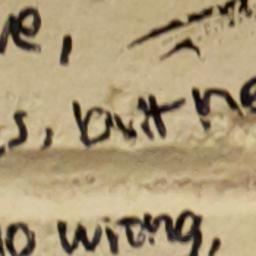 ve,
s, but ne
do wrong,